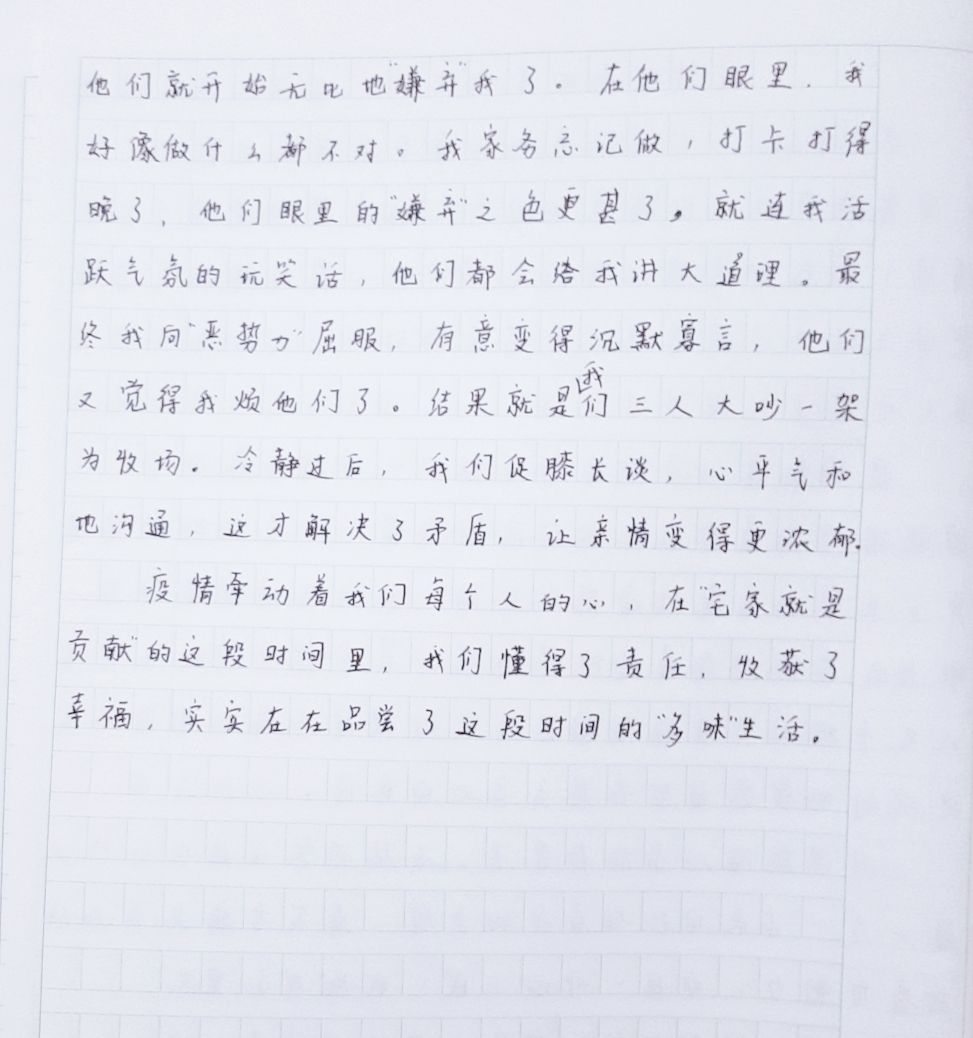 他们就开始无比地"嫌弃"我了。在他们眼里，我
好像做什么都不对。我家务忘记做，打卡打得
晚了，他们眼里的"嫌弃"之色更甚了。就连我活
跃气氛的玩笑话，他们都会给我讲大道理。最
终我向"恶势力"屈服，有意变得沉默寡言，他们
又觉得我烦他们了。结果就是我们三人大吵一架
为收场。冷静过后，我们促膝长谈，心平气和
地沟通，这才解决了矛盾，让亲情变得更浓郁.
疫情牵动着我们每个人的心，在"宅家就是
贡献"的这段时间里，我们懂得了责任，收获了
幸福，实实在在品尝了这段时间的"多味"生活。